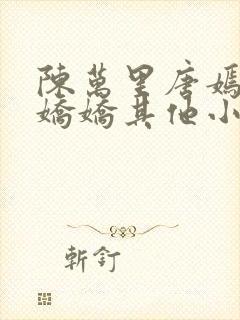 陳萬里唐嫣
嬌嬌其他小
斬釘